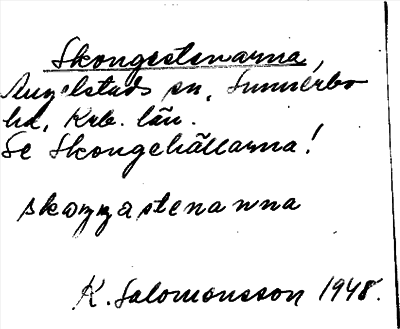 Skongestenarna,
Angelstads sn, Sunnerbo
hd, Krb. län.
Se Skongehällarna!
skoŋŋastenanna
K. Salomonsson 1948.